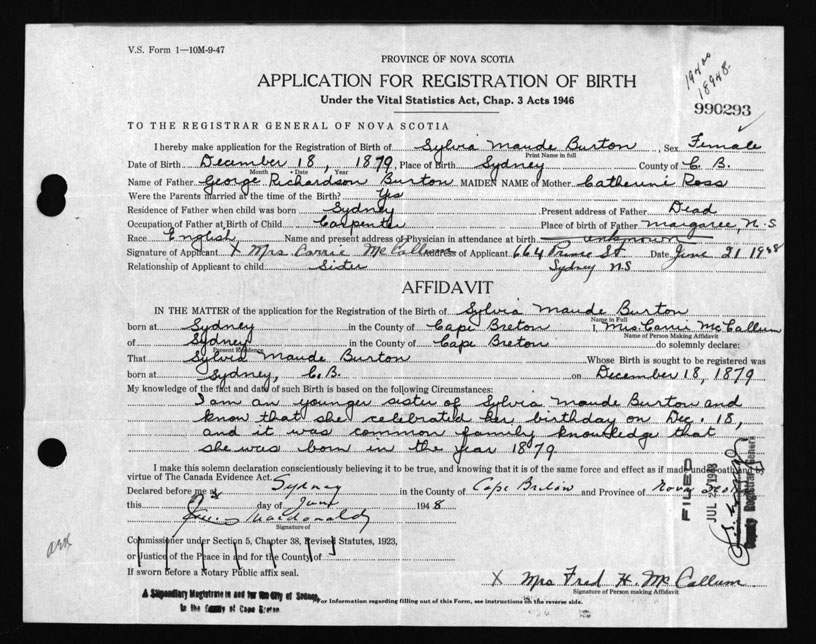 V.S. Form 1—10M-9-47
PROVINCE OF NOVA SCOTIA
APPLICATION FOR REGISTRATION OF BIRTH
Under the Vital Statistics Act, Chap. 3 Acts 1946
19400
18948.
990293
TO THE REGISTRAR GENERAL OF NOVA SCOTIA
I hereby make application for the Registration of Birth of Sylvia Maude Burton, Sex Female
Print Name in full
Date of Birth December 18, 1879, Place of Birth Sydney County of C. B.
Month Date Year
Name of Father George Richardson Burton MAIDEN NAME of Mother Catherine Ross
Were the Parents married at the time of the Birth? Yes
Residence of Father when child was born Sydney Present address of Father Dead
Occupation of Father at Birth of Child Carpenter Place of birth of Father Margaree, N.S
Race English Name and present address of Physician in attendance at birth unknown
Signature of Applicant X Mrs Carrie McCallum Address of Applicant 664 Prince St. Date June 21 1948
Relationship of Applicant to child Sister Sydney N.S
AFFIDAVIT
IN THE MATTER of the application for the Registration of the Birth of Sylvia Maude Burton
Name in Full
born at Sydney in the County of Cape Breton I, Mrs. Carrie McCallum
Name of Person Making Affidavit
of Sydney in the County of Cape Breton do solemnly declare:
Present Residence
That Sylvia Maude Burton Whose Birth is sought to be registered was
born at Sydney, C.B. on December 18, 1879
My knowledge of the fact and date of such Birth is based on the following Circumstances:
I am an younger sister of Sylvia Maude Burton and
know that she celebrated her birthday on Dec. 18,
and it was common family knowledge that
she was born in the year 1879
I make this solemn declaration conscientiously believing it to be true, and knowing that it is of the same force and effect as if made under oath and by
virtue of The Canada Evidence Act.
Declared before me at Sydney in the County of Cape Breton and Province of Nova Scotia
this day of June 1948
Macdonald
Signature of
Commissioner under Section 5, Chapter 38, Revised Statutes, 1923,
or Justice of the Peace in and for the County of
If sworn before a Notary Public affix seal.
X Mrs Fred H. McCallum
Signature of Person making Affidavit
A Stipendiary Magistrate in and for the City of Sydney
in the County of Cape Breton
For Information regarding filling out of this Form, see instructions on the reverse side.
FILED
JUL 22 1948